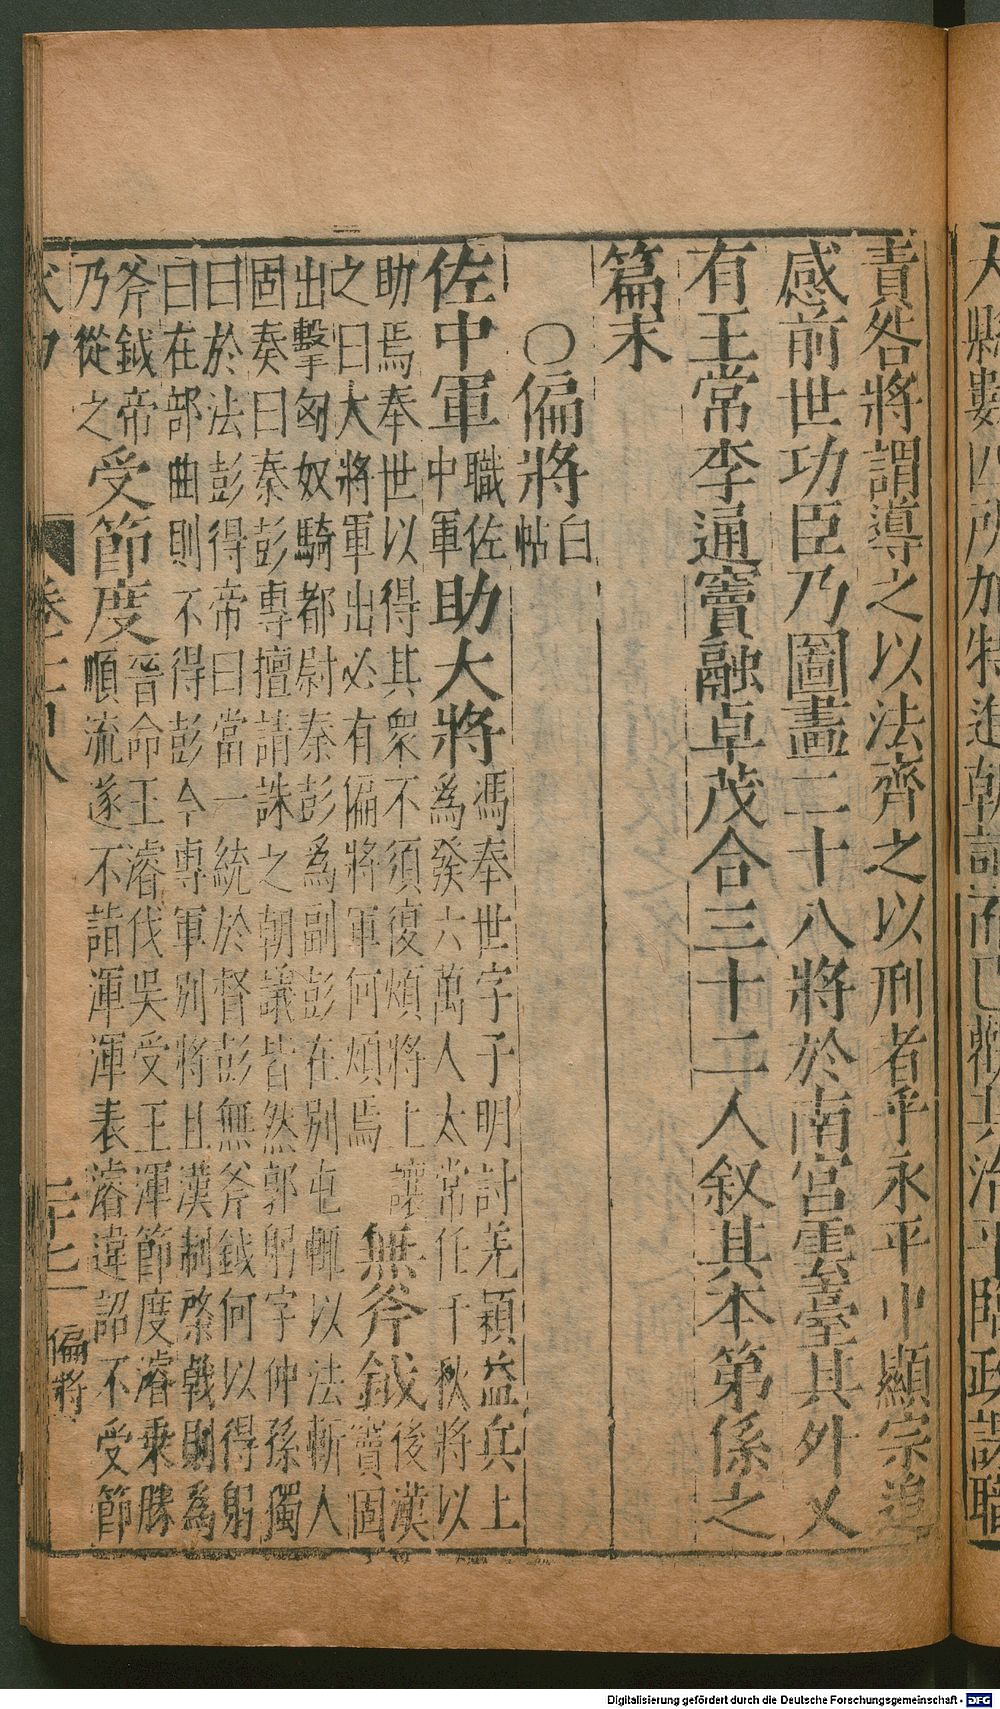 大縣數四所加特進朝請而已觀其治平臨政課職
責咎將謂導之以法齊之以刑者乎永平中顯宗追
感前世功臣乃圖畫二十八將於南宮雲臺其外又
有王常李通竇融卓茂合三十二人叙其本第係之
篇末
〇偏將白帖
佐中軍職佐中軍助大將馮奉世字子明討羌潁益兵上為發六萬人太常任千秋將以
助焉奉世以得其衆不須復煩將上讓之曰大將軍出必有偏將軍何煩焉無斧鉞後漢竇固
出擊匈奴騎都尉秦彭為副彭在別屯輒以法斬人
固奏曰秦彭專擅請誅之朝議皆然郭躬字仲孫獨
曰於法彭得帝曰當一統於督彭無斧鉞何以得躬
曰在部曲則不得彭今專軍別將且漢制棨戟則為
斧鉞帝乃從之受節度晉命王濬伐吳受王渾節度濬乘勝
順流遂不詣渾渾表濬違詔不受節
二十七 偏將
Digitalisierung gefördert durch die Deutsche Forschungsgemeinschaft - DFG